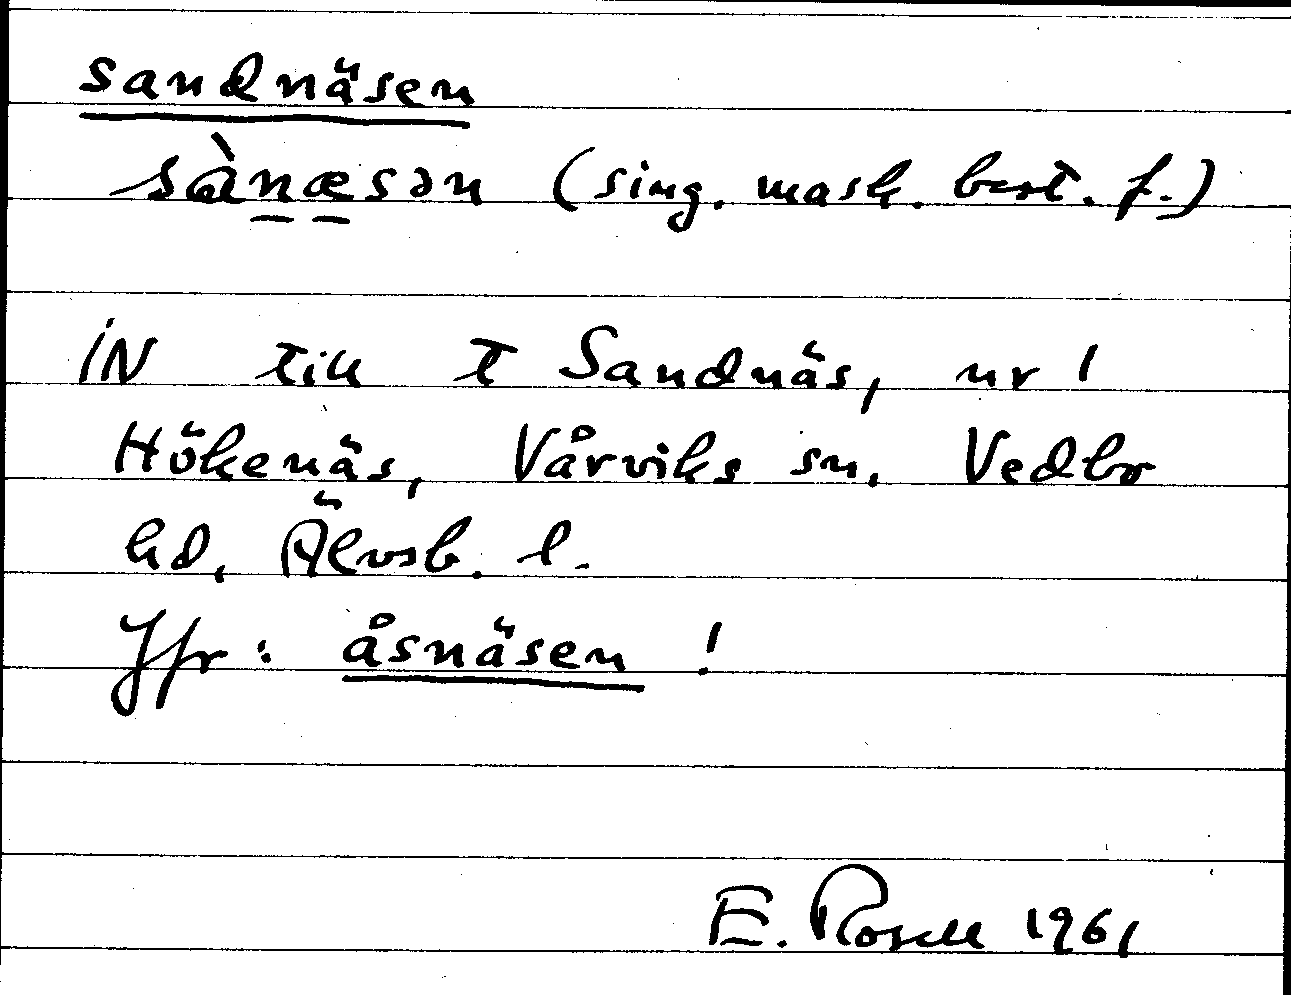 sandnäsen
sànæsən (sing. mask. best. f.)
IN till t Sandnäs, nr 1
Hökenäs, Vårviks sn. Vedbo
hd, Älvsb. l.
Jfr: åsnäsen !
E. Rosell 1961